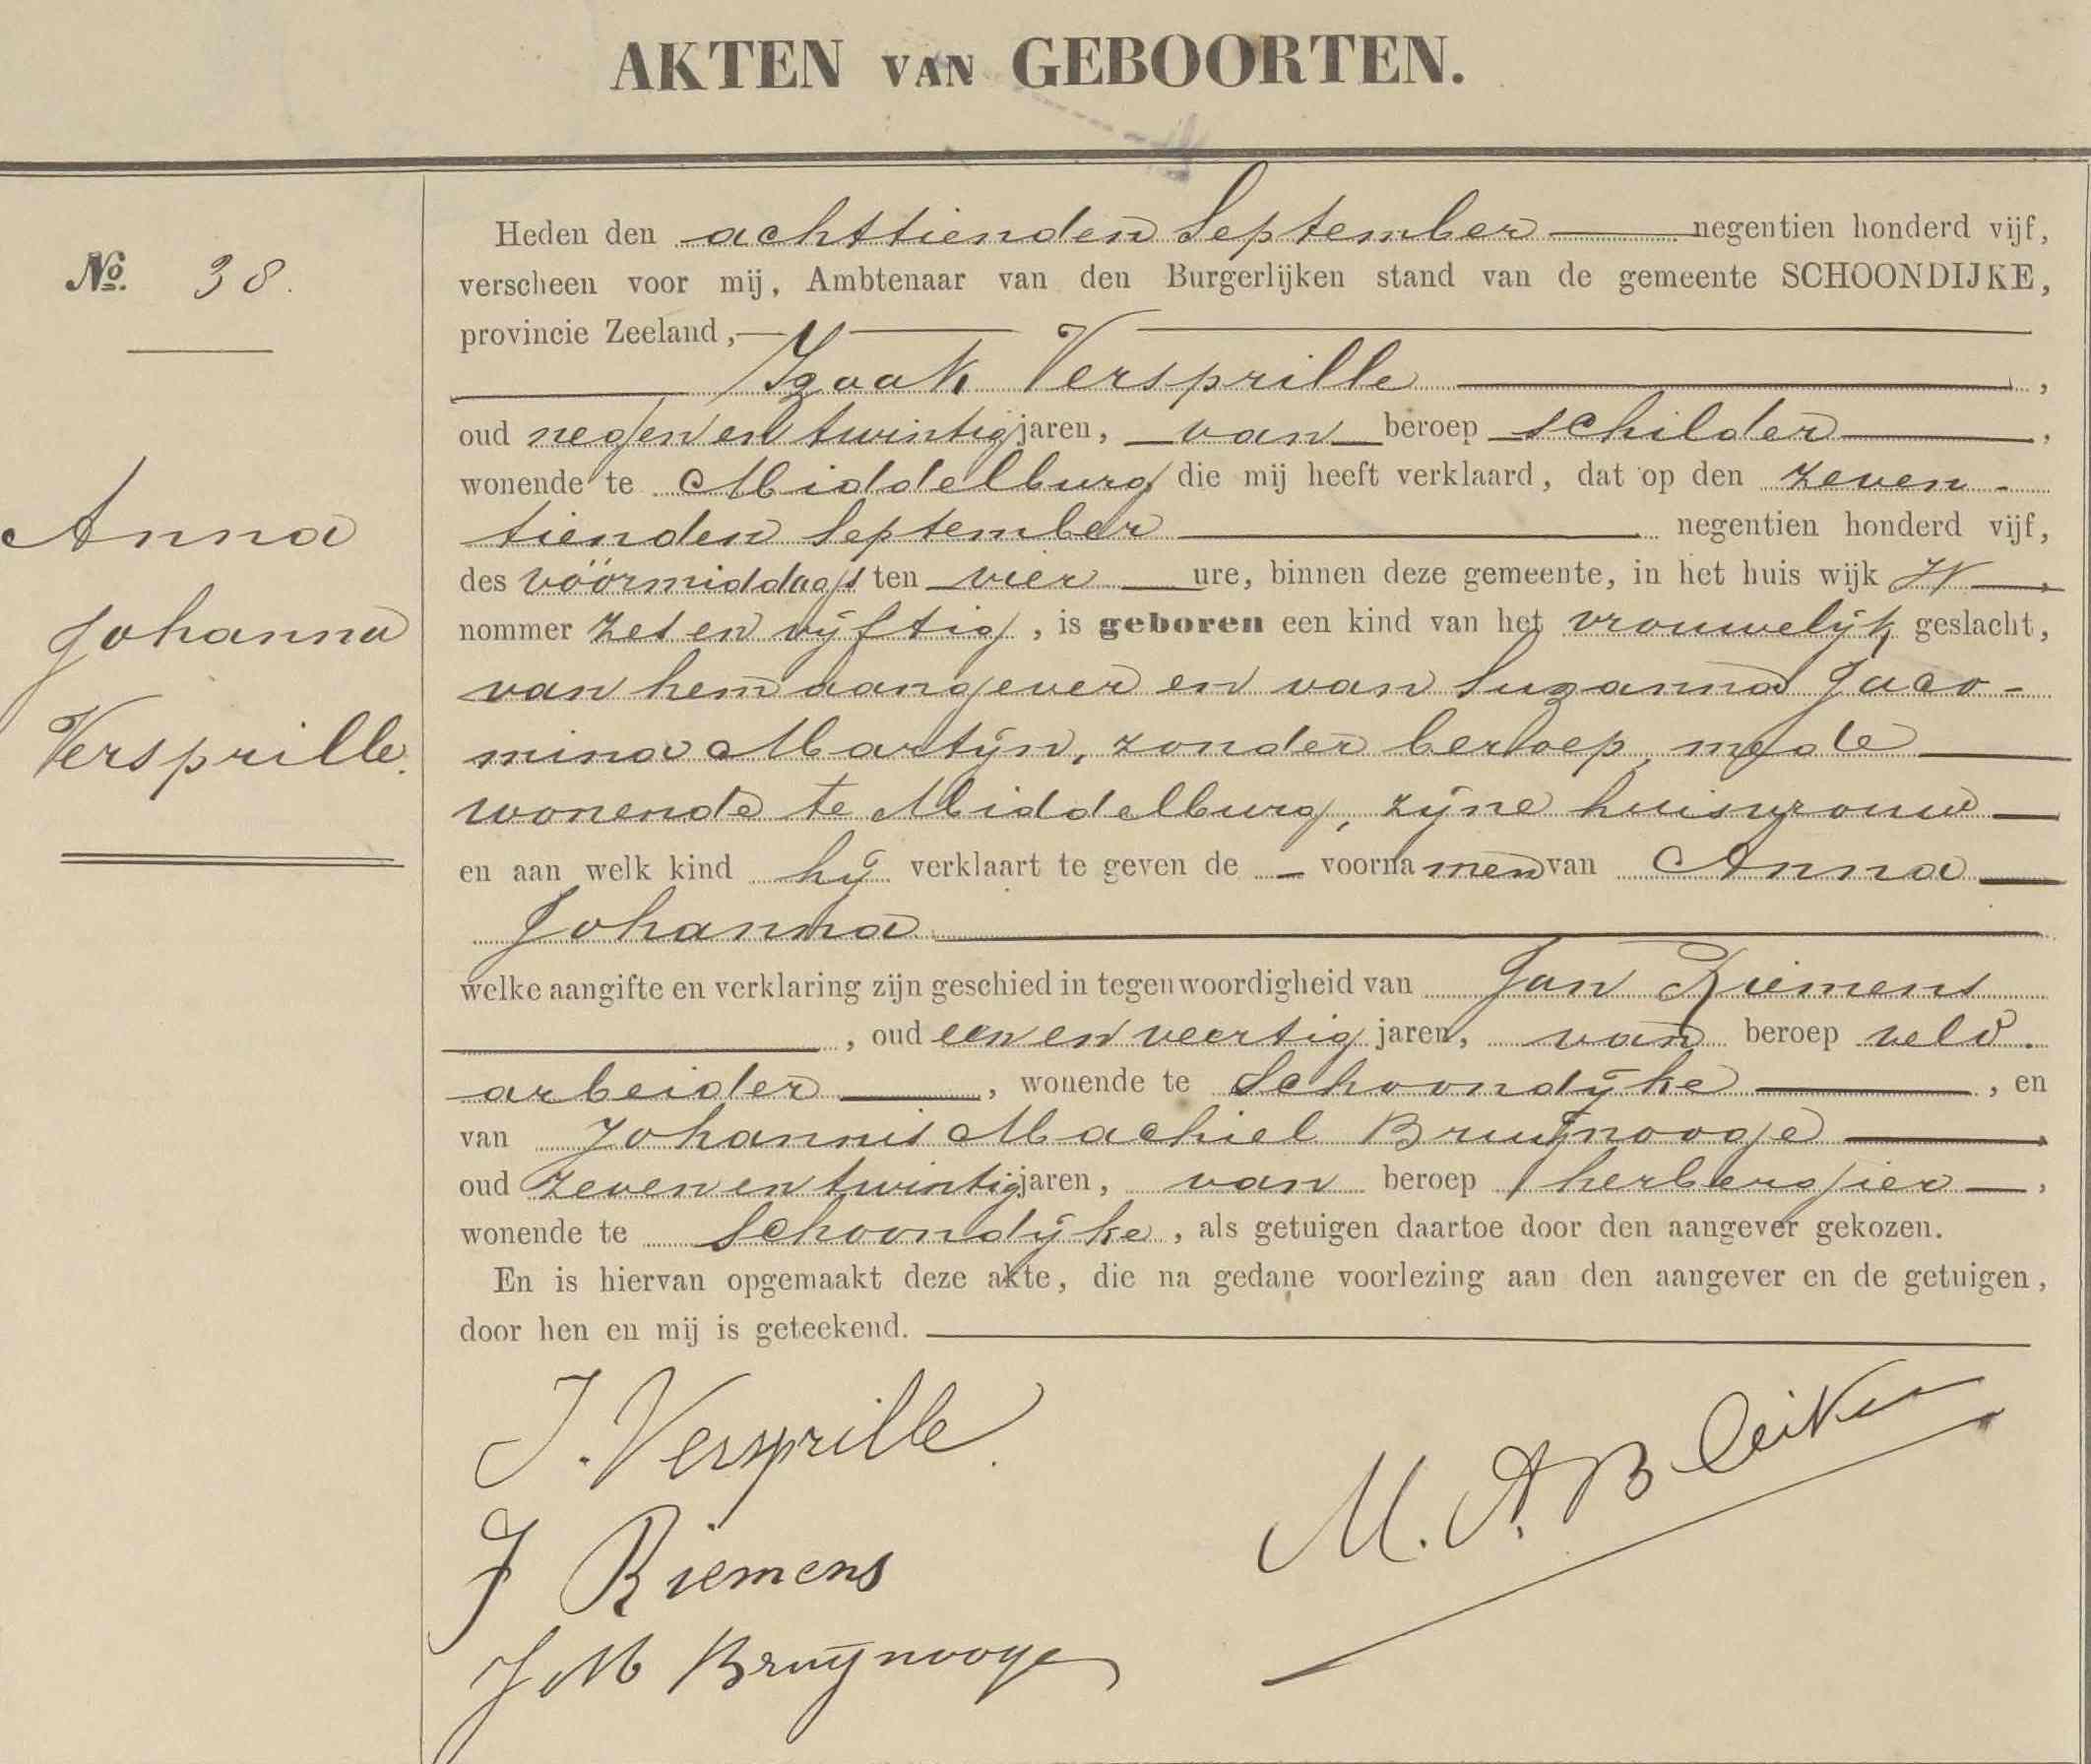 AKTEN VAN GEBOORTEN.
No. 38.
Anna
Johanna
Versprille.
Heden den achttienden September negentien honderd vijf,
verscheen voor mij, Ambtenaar van den Burgerlijken stand van de gemeente SCHOONDIJKE,
provincie Zeeland,
Izaak Versprille,
oud negen en twintig jaren, van beroep schilder,
wonende te Middelburg die mij heeft verklaard, dat op den zeven-
tienden September negentien honderd vijf,
des vóórmiddags ten vier ure, binnen deze gemeente, in het huis wijk,
nommer zes en vijftig, is geboren een kind van het vrouwelijk geslacht,
van hem aangever en van Suzanna Jaco-
mina Martijn, zonder beroep, mede
wonende te Middelburg, zijne huisvrouw
en aan welk kind hij verklaart te geven de - voornamen van Anna
Johanna
welke aangifte en verklaring zijn geschied in tegenwoordigheid van Jan Riemens
, oud een en veertig jaren, van beroep veld-
arbeider, wonende te Schoondijke, en
van Johannis Machiel Bruijnooge,
oud zeven en twintig jaren, van beroep herbergier,
wonende te Schoondijke, als getuigen daartoe door den aangever gekozen.
En is hiervan opgemaakt deze akte, die na gedane voorlezing aan den aangever en de getuigen,
door hen en mij is geteekend.
J. Versprille.
M. A. Bleiker
J Riemens
J M Bruijnooge